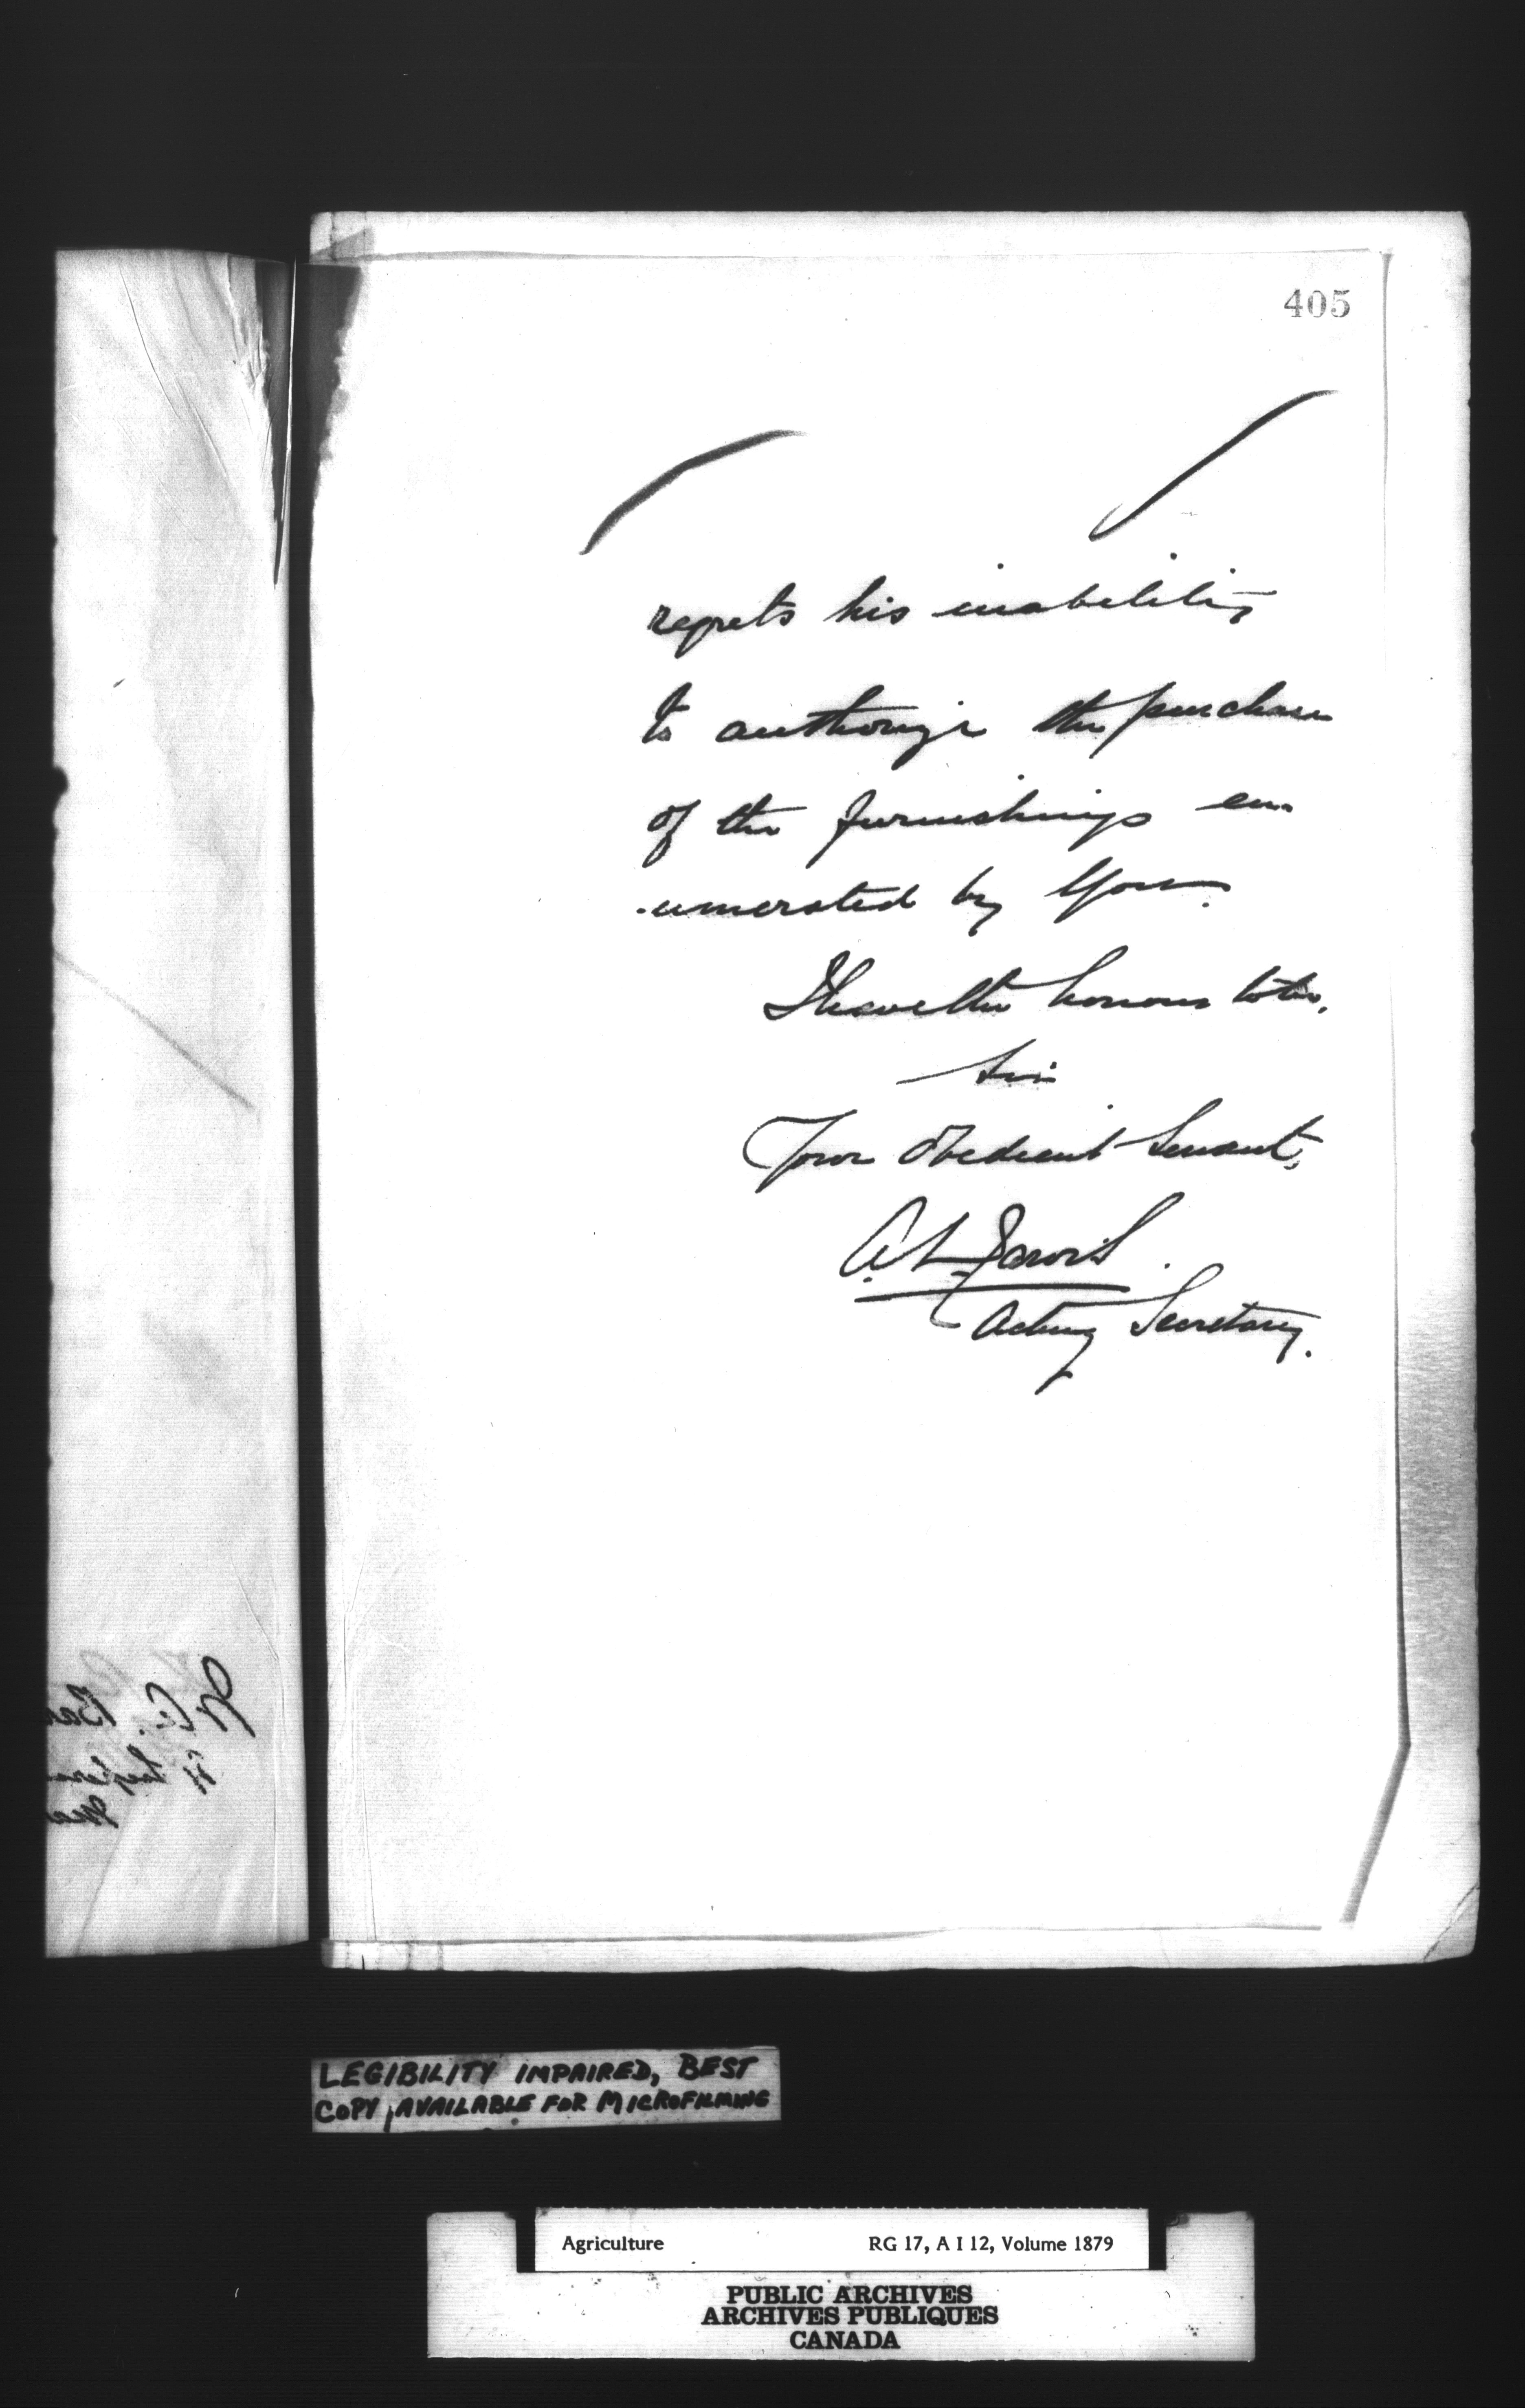 405
regrets his inability
to authorize the purchase
of the furnishings en-
-umerated by you.
I have the honour to be,
Sir
Your obedient Servant,
A. L. Jarvis.
Acting Secretary.
LEGIBILITY IMPAIRED, BEST
COPY AVAILABLE FOR MICROFILMING
Agriculture RG 17, A I 12, Volume 1879
PUBLIC ARCHIVES
ARCHIVES PUBLIQUES
CANADA